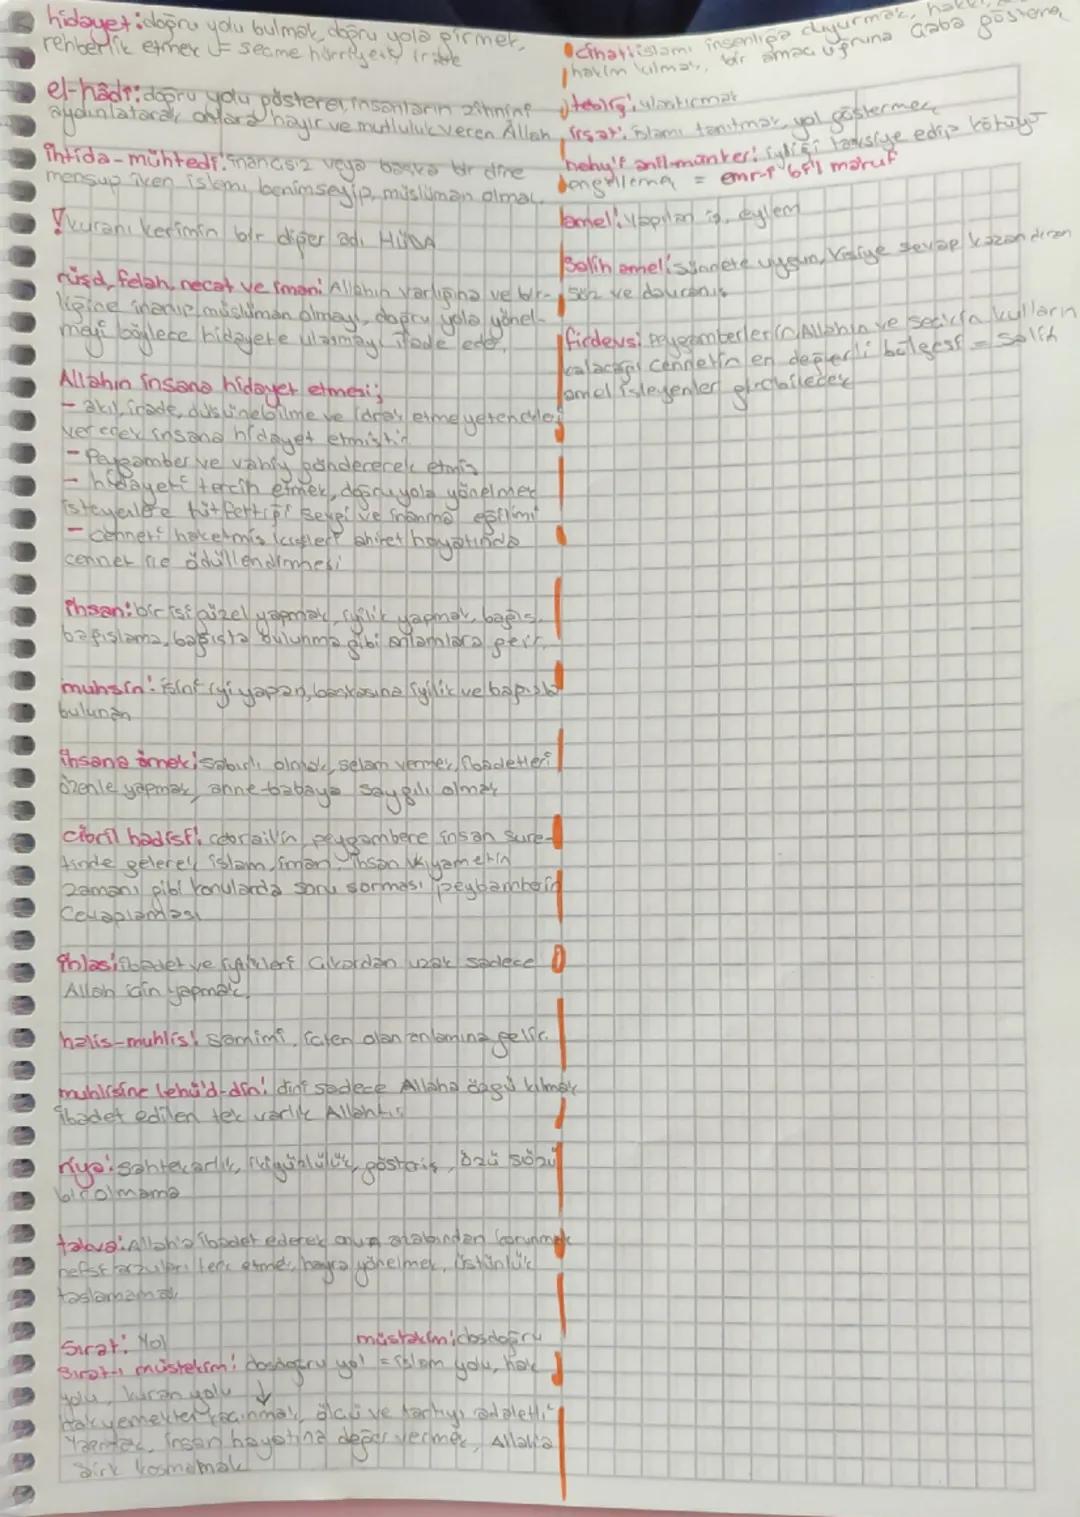 hidayet: doğru yolu bulmak, doğru yola girmek,
rehberlik etmek = seçme hürriyeti irade
el-hâdi: doğru yolu gösteren, insanların zihnini
aydınlatarak onlara hayır ve mutluluk veren Allah
ihtida-mühtedi: inançsız veya başka bir dine
mensup iken islamı benimseyip müslüman olmak
! kuranı kerimin bir diğer adı HÜDA
rüşd, felah, necat ve iman: Allahın varlığına ve bir-
liğine inanıp müslüman olmayı, doğru yola yönel-
meyi böylece hidayete ulaşmayı ifade eder.
Allahın insana hidayet etmesi;
- akıl, irade, düşünebilme ve idrak etme yetenekleri
vererek insana hidayet etmiştir
- Peygamber ve vahiy göndererek etmiş
- hidayeti tercih etmek, doğru yola yönelmek
isteyenlere lütfettiği sevgi ve inanma eğilimi
- cenneti haketmiş kişileri ahiret hayatında
cennet ile ödüllendirmesi
ihsan: bir işi güzel yapmak, iyilik yapmak, bağış,
bağışlama, bağışta bulunma gibi anlamlara gelir.
muhsin: işini iyi yapan, başkasına iyilik ve bağışta
bulunan
ihsana örnek; sabırlı olmak, selam vermek, ibadetleri
özenle yapmak, anne-babaya saygılı olmak
cibril hadisi: cebrailin peygambere insan sure-
tinde gelerek islam, iman, ihsan kıyametin
zamanı gibi konularda soru sorması peygamberin
cevaplaması
ihlas: ibadet ve iyilikleri çıkardan uzak sadece
Allah için yapmak
halis-muhlis: samimi, içten olan anlamına gelir.
muhlisine lehü'd-din: dini sadece Allaha özgü kılmak
ibadet edilen tek varlık Allahtır
riya: sahtekarlık, ikiyüzlülük, gösteriş, özü sözü
bir olmama
takva: Allah'a ibadet ederek onun azabından korunmak
nefsi arzuları terk etmek, hayra yönelmek, üstünlük
taslamamak
Sırat: Yol müstakim: dosdoğru
Sırat-ı müstekim: dosdoğru yol = islam yolu, hak
yolu, kuran yolu ↓
Hak yemekten kaçınmak, ölçü ve tartıyı adaletli
yapmak, insan hayatına değer vermek, Allaha
şirk koşmamak
cihat: islamı insanlığa duyurmak, hakkı
hakim kılmak, bir amaç uğruna çaba göstermek
tebliğ: ulaştırmak
irşat: islamı tanıtmak, yol göstermek
nehy'i anil-münker: iyiliği tavsiye edip kötüyü
engelleme = emr-i bi'l maruf
amel: yapılan iş, eylem
Salih amel: sünnete uygun, kişiye sevap kazandıran
söz ve davranış
firdevs: Peygamberlerin, Allahın ve seçkin kulların
kalacağı cennetin en değerli bölgesi = Salih
amel işleyenler girebilecek